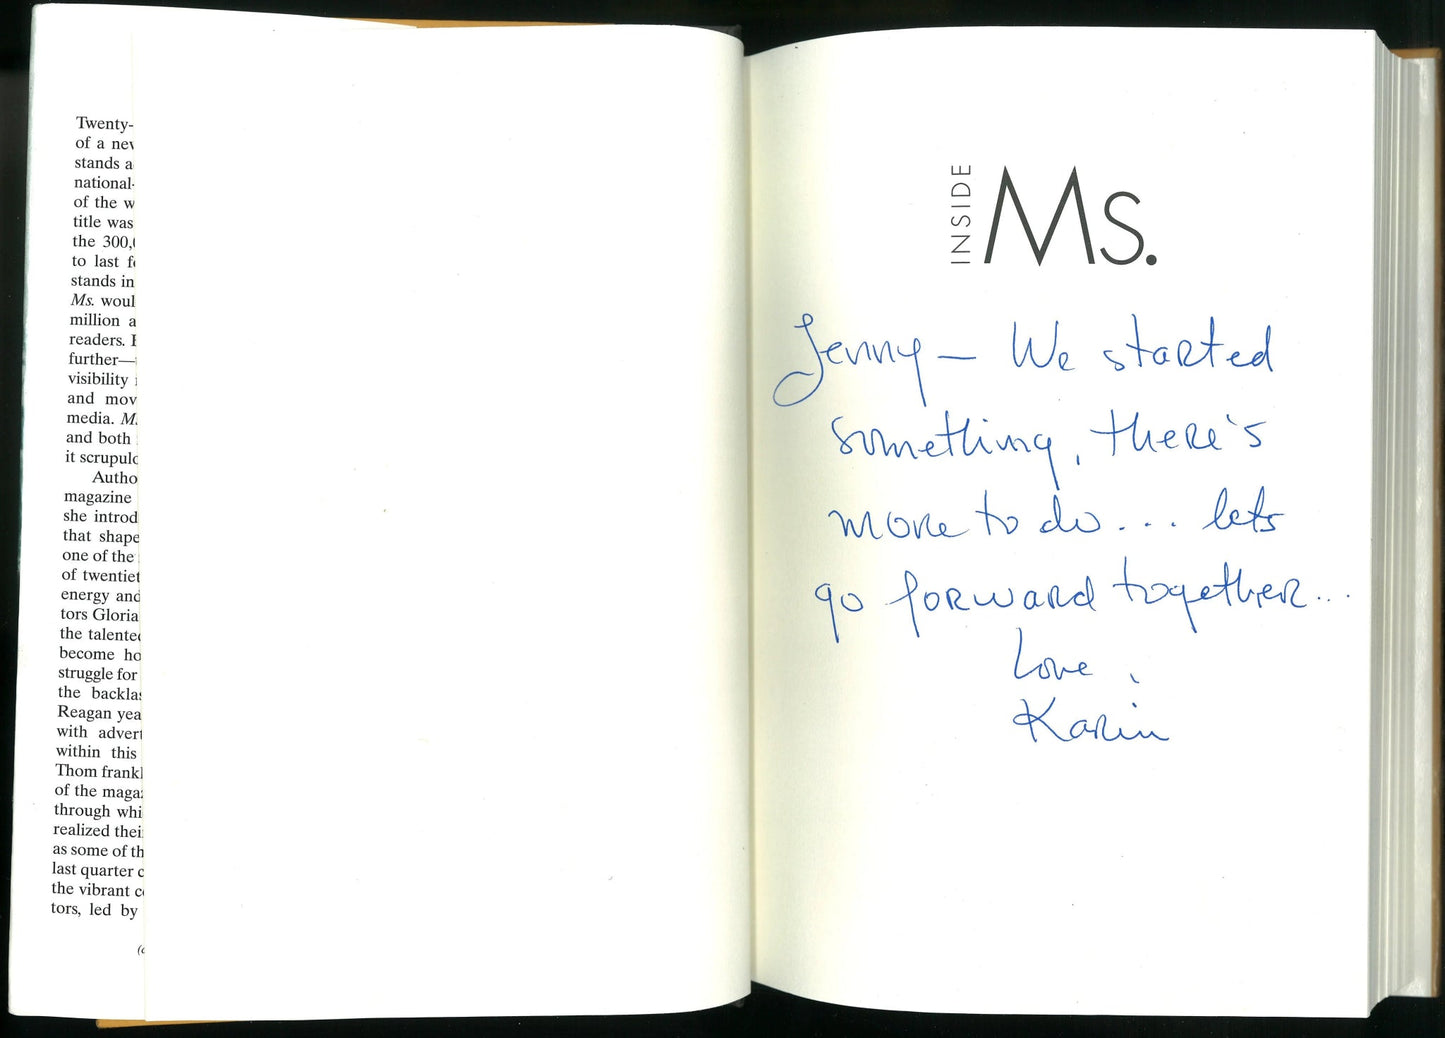 Twenty-
of a nev
stands a
national-
of the w
title was
the 300,
to last f
stands in
Ms. woul
million a
readers.
further—
visibility
and mov
media. M
and both
it scrupulo
Autho
magazine
she introd
that shape
one of the
of twentiet
energy and
tors Gloria
the talente
become ho
struggle for
the backla
Reagan yea
with advert
within this
Thom frankl
of the maga
through whi
realized thei
as some of th
last quarter c
the vibrant c
tors, led by
INSIDE
Ms.
Jenny — We started
something, there's
more to do... lets
go forward together...
Love,
Karin